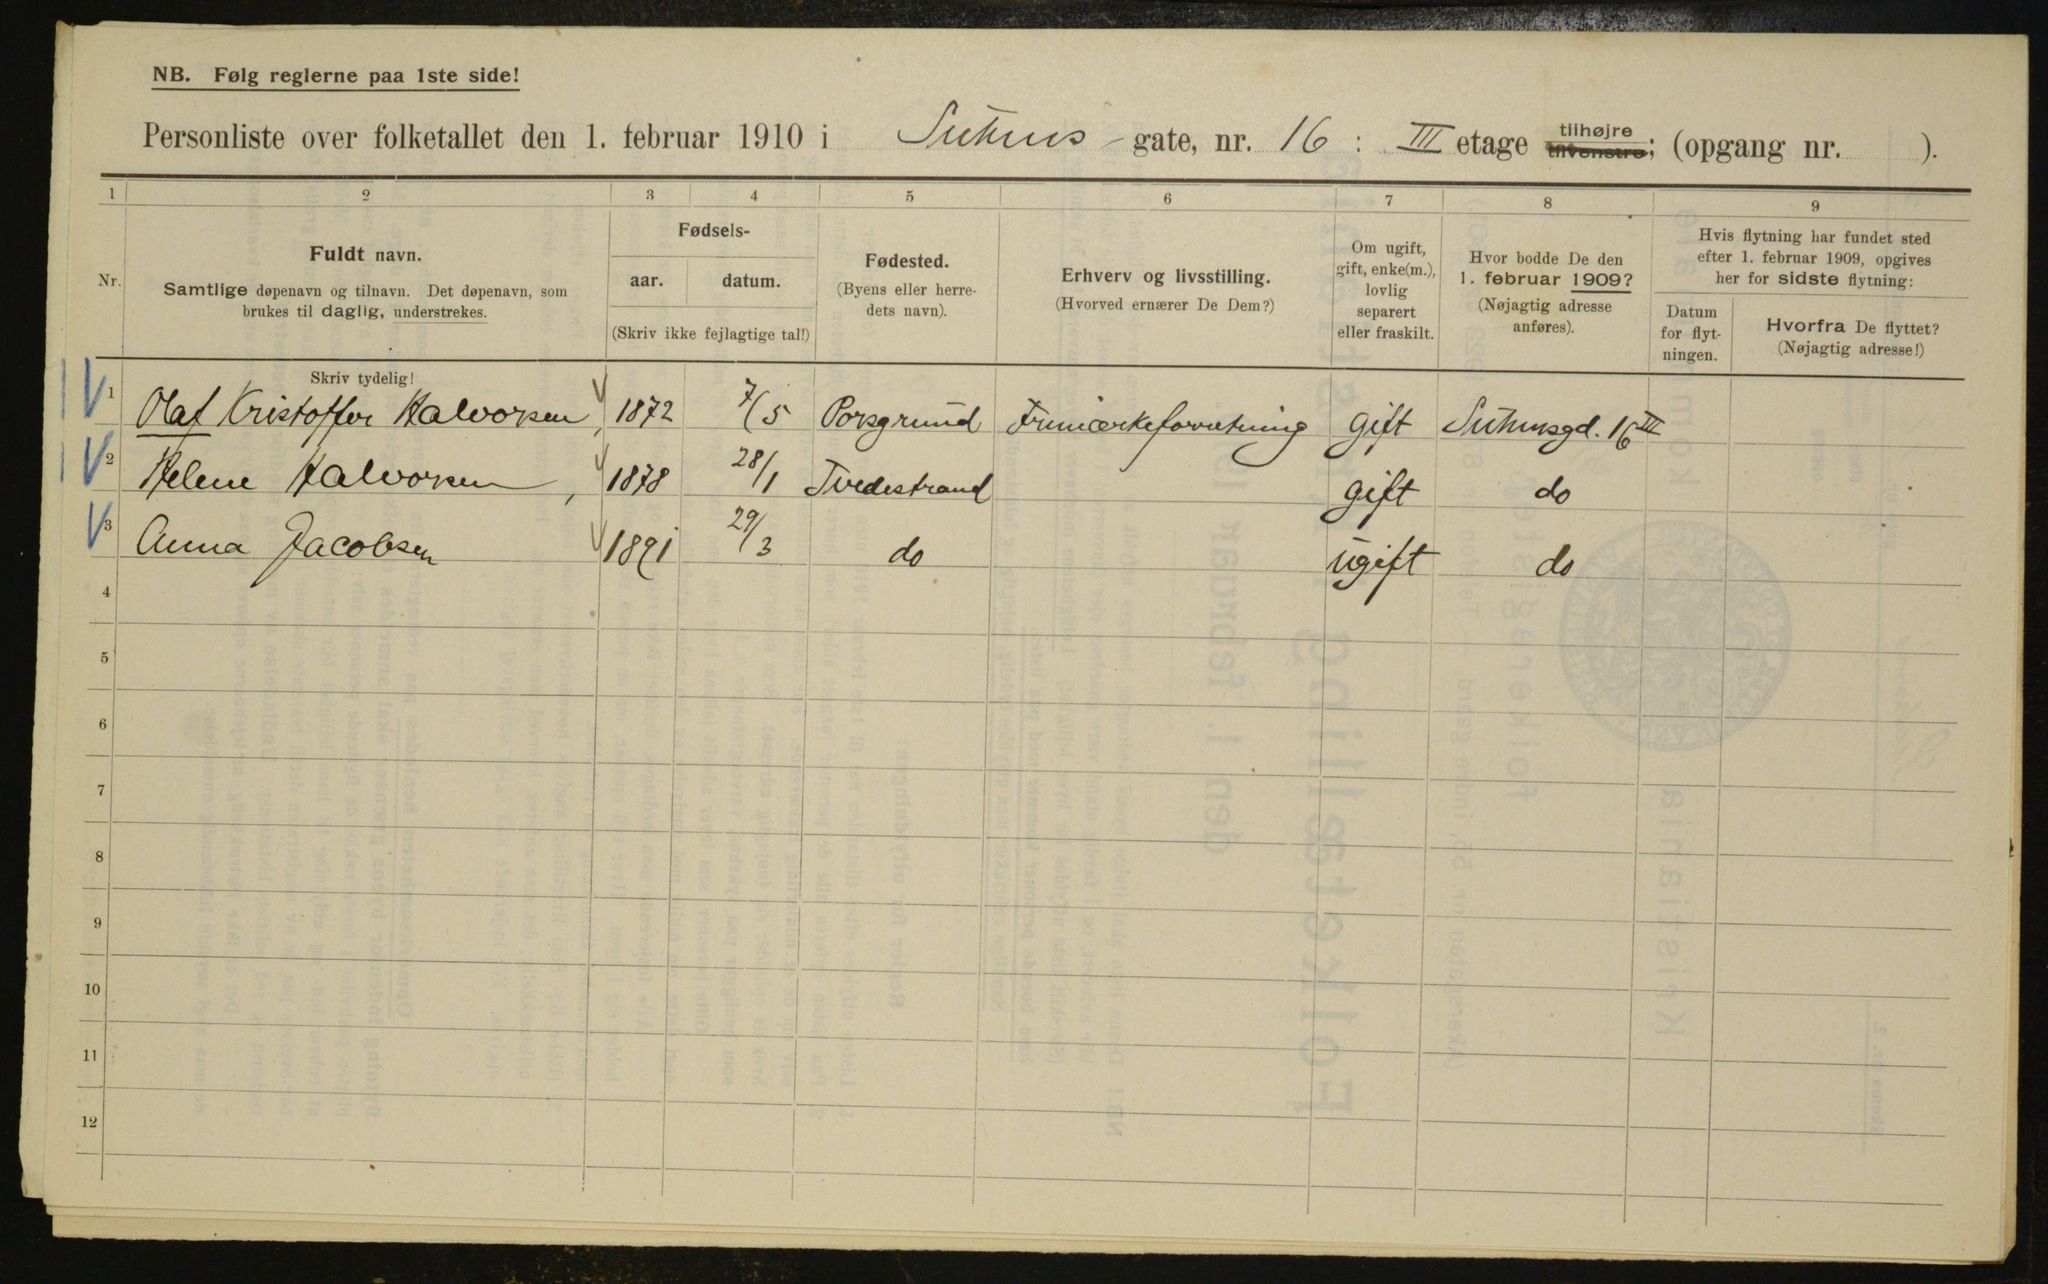 NB. Følg reglerne paa 1ste side!
Personliste over folketallet den 1. februar 1910 i Suhms gate, nr. 16 : III etage tilhøjre tilvenstre; (opgang nr. ).
1 2 3 4 5 6 7 8 9
Nr.
Fuldt navn.
Samtlige døpenavn og tilnavn. Det døpenavn, som
brukes til daglig, understrekes.
Fødsels-
aar. datum.
(Skriv ikke fejlagtige tal!)
Fødested.
(Byens eller herre-
dets navn).
Erhverv og livsstilling.
(Hvorved ernærer De Dem?)
Om ugift,
gift, enke(m.),
lovlig
separert
eller fraskilt.
Hvor bodde De den
1. februar 1909?
(Nøjagtig adresse
anføres).
Hvis flytning har fundet sted
efter 1. februar 1909, opgives
her for sidste flytning:
Datum
for flyt-
ningen.
Hvorfra De flyttet?
(Nøjagtig adresse!)
Skriv tydelig!
1 Olaf Kristoffer Halvorsen, 1872 7/5 Porsgrund Frimærkeforretning gift Suhmsgd. 16 III
2 Helene Halvorsen, 1878 28/1 Tvedestrand gift do
3 Anna Jacobsen 1891 29/3 do ugift do
4
5
6
7
8
9
10
11
12